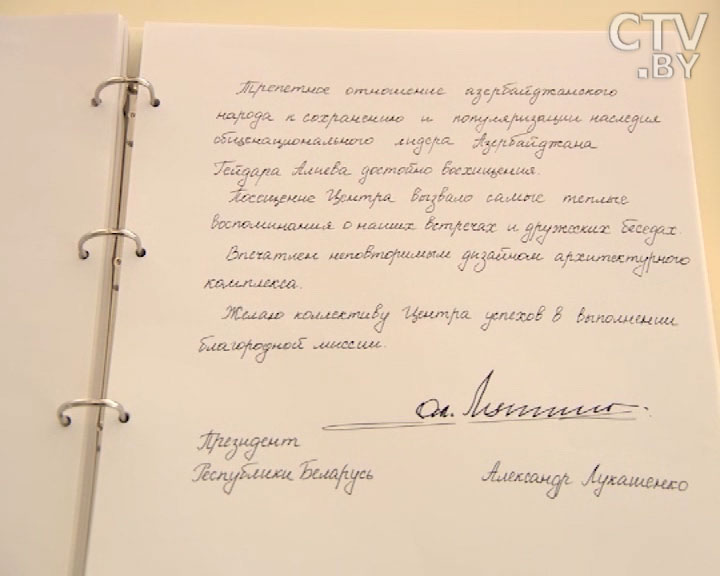 CTV
.BY
Трепетное отношение азербайджанского
народа к сохранению и популяризации наследия
общенационального лидера Азербайджана
Гейдара Алиева достойно восхищения.
Посещение Центра вызвало самые теплые
воспоминания о наших встречах и дружеских беседах.
Впечатлен неповторимым дизайном архитектурного
комплекса.
Желаю коллективу Центра успехов в выполнении
благородной миссии.
Президент
Республики Беларусь Александр Лукашенко